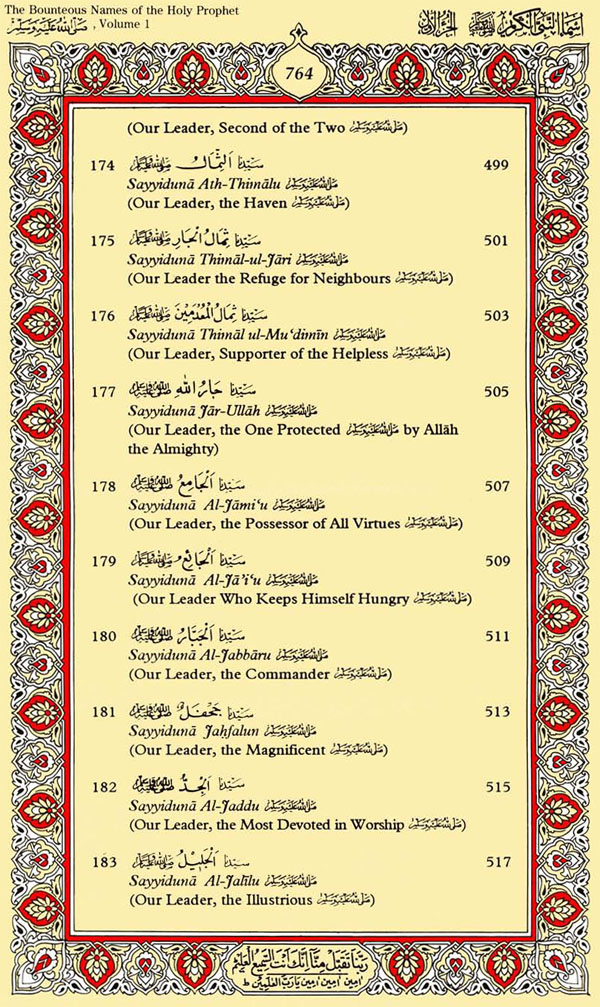 The Bounteous Names of the Holy Prophet
ﷺ , Volume 1
اسماء النبی الکریم ﷺ الجزء الاول
764
(Our Leader, Second of the Two ﷺ)
174 سَيِّدُنَا اَلثِّمَالُ ﷺ 499
Sayyidunā Ath-Thimālu ﷺ
(Our Leader, the Haven ﷺ)
175 سَيِّدُنَا ثِمَالُ الْجَارِ ﷺ 501
Sayyidunā Thimāl-ul-Jāri ﷺ
(Our Leader the Refuge for Neighbours ﷺ)
176 سَيِّدُنَا ثِمَالُ الْمُعْدِمِيْنَ ﷺ 503
Sayyidunā Thimāl ul-Mu‘dimīn ﷺ
(Our Leader, Supporter of the Helpless ﷺ)
177 سَيِّدُنَا جَارُ اللّٰهِ ﷺ 505
Sayyidunā Jār-Ullāh ﷺ
(Our Leader, the One Protected ﷺ by Allāh
the Almighty)
178 سَيِّدُنَا اَلْجَامِعُ ﷺ 507
Sayyidunā Al-Jāmi‘u ﷺ
(Our Leader, the Possessor of All Virtues ﷺ)
179 سَيِّدُنَا اَلْجَائِعُ ﷺ 509
Sayyidunā Al-Jā’i‘u ﷺ
(Our Leader Who Keeps Himself Hungry ﷺ)
180 سَيِّدُنَا اَلْجَبَّارُ ﷺ 511
Sayyidunā Al-Jabbāru ﷺ
(Our Leader, the Commander ﷺ)
181 سَيِّدُنَا جَحْفَلٌ ﷺ 513
Sayyidunā Jaḥfalun ﷺ
(Our Leader, the Magnificent ﷺ)
182 سَيِّدُنَا اَلْجِدُّ ﷺ 515
Sayyidunā Al-Jaddu ﷺ
(Our Leader, the Most Devoted in Worship ﷺ)
183 سَيِّدُنَا اَلْجَلِيْلُ ﷺ 517
Sayyidunā Al-Jalīlu ﷺ
(Our Leader, the Illustrious ﷺ)
رَبَّنَا تَقَبَّلْ مِنَّا اِنَّكَ اَنْتَ السَّمِيْعُ الْعَلِيْمُ
اٰمين اٰمين اٰمين يَارَبَّ الْعٰلَمِيْنَ ط